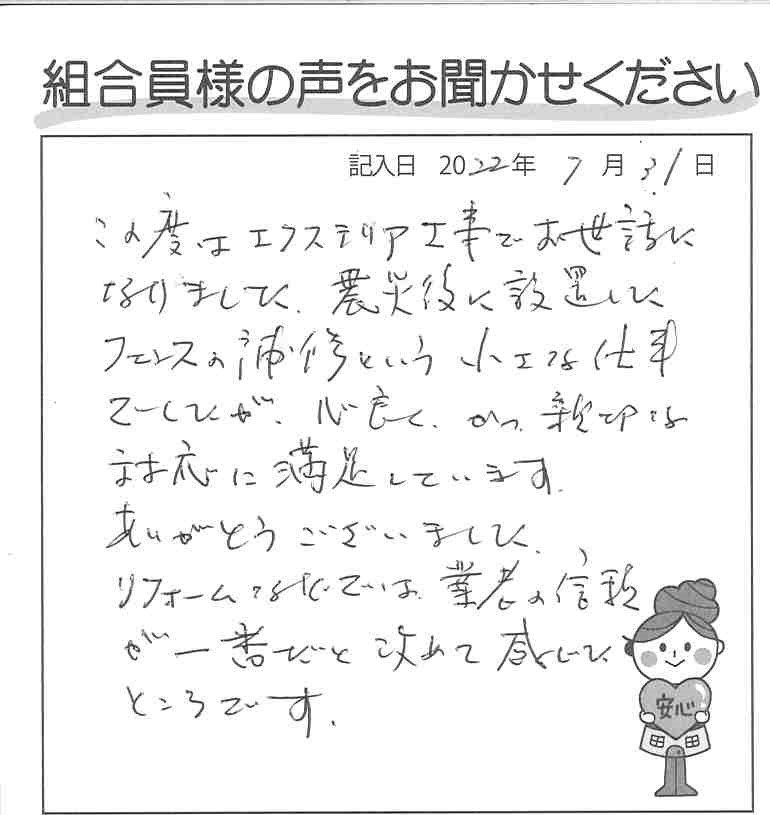 組合員様の声をお聞かせください
記入日 2022年 7月31日
この度はエクステリア工事でお世話に
なりました。震災後に設置した
フェンスの補修という小工な仕事
でしたが、心良く、かつ親切な
対応に満足しています。
ありがとうございました。
リフォームなどでは、業者の信頼
が一番だと改めて感じた
ところです。
安心